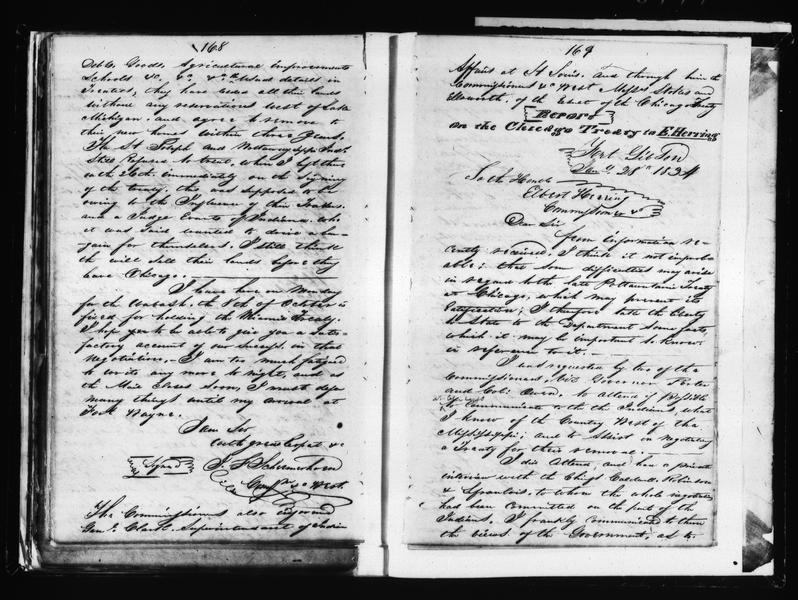 168
Debts, Goods, Agricultural improvements
Schools &c. &c. & detail details in
Treaties, they have ceded all their lands
without any reservations west of Lake
Michigan. and agree to remove to
their new homes within three years.
The St Joseph and Inds.
still refused to treat, when I left them
on the 26th immediately on the signing
of the treaty. this was supposed to be
owing to the Influence of their Traders.
and a Judge of Indiana. who
it was said wanted to drive a bar-
gain for themselves. I still think
the will sell their lands before they
leave Chicago.
I leave here on Monday
for the Wabash. the 8th of October is
fixed for holding the Miami Treaty.
I hope you to be able to give you a satis-
factory account of our success in that
Negotiation. I am too much fatigued
to write any more to night, and as
the Mail closes soon, I must defer
many things until my arrival at
Fort Wayne.
I am Sir
with great respect &c
Signed J. F. Schermerhorn
Comr. &c West.
The Commissioners also
Genl. Clark. Superintendent of Indian
169
Affairs at St Louis. and through him the
Commissioners &c West, Messrs Stokes and
Ellsworth, of the of the Chicago Treaty
Report
On the Chicago Treaty to E. Herring
Fort Gibson
Jany 28th 1834
To the Honble
Elbert Herring
Commissioner &c
Dear Sir
from Information re-
cently received, I think it not improb-
able; that some difficulties may arise
in regard to the late Pottawatamie Treaty
at Chicago, which may prevent its
Ratification; I therefore take the liberty
to State to the Department some facts,
which it may be important to know
in reference to it.
I was requested by two of the
Commissioners, viz Governor Porter
and Col: Owen, to attend if possible
to communicate to the Indians, what
I knew of the Country West of the
Mississippi; and to assist in negotiating
a Treaty for their removal.
I did attend, and had a private
interview with the Chiefs Caldwell, Robinson
& to whom the whole negotiation
had been committed on the part of the
Indians. I frankly communicated to them
the views of the Government, as to